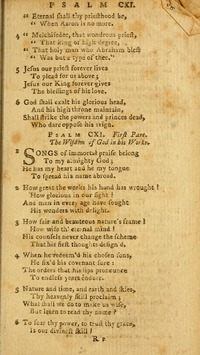 PSALM CXI.
" Eternal shall thy priesthood be,
" When Aaron is no more.
4 " Melchisedec, that wondrous priest,
" That king of high degree,
" That holy man who Abraham blest
" Was but a type of thee."
5 Jesus our priest forever lives
To plead for us above;
Jesus our King forever gives
The blessings of his love.
6 God shall exalt his glorious head,
And his high throne maintain,
Shall strike the powers and princes dead,
Who dare oppose his reign.
PSALM CXI. First Part.
The Wisdom of God in his Works.
SONGS of immortal praise belong
To my almighty God;
He has my heart and he my tongue
To spread his name abroad.
2 How great the works his hand has wrought!
How glorious in our sight!
And men in every age have sought
His wonders with delight.
3 How fair and beauteous nature's frame!
How wise th' eternal mind!
His counsels never change the scheme
That his first thoughts design'd.
4 When he redeem'd his chosen sons,
He fix'd his covenant sure:
The orders that his lips pronounce
To endless years endure.
5 Nature and time, and earth and skies,
Thy heavenly skill proclaim;
What shall we do to make us wise,
But learn to read thy name?
6 To fear thy power, to trust thy grace,
Is our divinest skill!